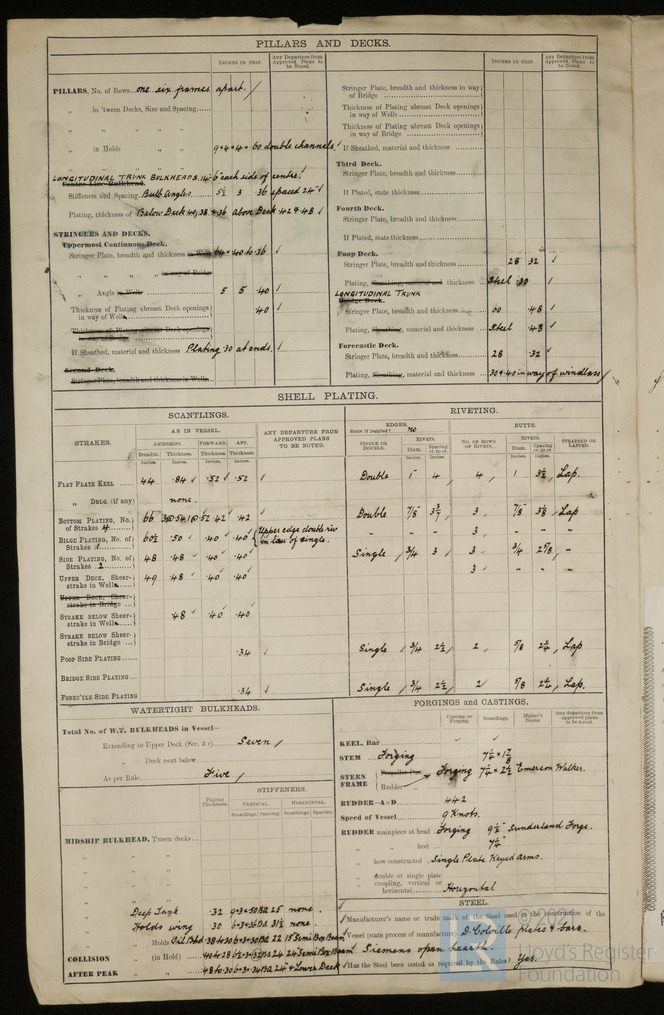 PILLARS AND DECKS.
INCHES IN SHIP.
Any Departure from Approved Plans to be Noted.
PILLARS, No. of Rows... one six frames apart.
„ in 'tween Decks, Size and Spacing......
„ „ „ „
„ in Holds 9 × 4 × 4 × .60 double channels.
LONGITUDINAL TRUNK BULKHEADS, 14'-6 each side of centre.
Centre Line Bulkhead.
Stiffeners and Spacing. Bulb Angles 5½ 3 .36 spaced 24"
Plating, thickness of Below Deck .40, .38 & .36 Above Deck .42 & .48
STRINGERS AND DECKS.
Uppermost Continuous Deck.
Stringer Plate, breadth and thickness in Wells 64 × .40 to .36
„ „ „ „ in way of Bridge
„ Angle in Wells 5 5 .40
Thickness of Plating abreast Deck openings in way of Wells .40
Thickness of Plating abreast Deck openings in way of Bridge
If Sheathed, material and thickness Plating .30 at ends.
Second Deck.
Stringer Plate, breadth and thickness in Wells...
INCHES IN SHIP.
Any Departure from Approved Plans to be Noted.
Stringer Plate, breadth and thickness in way of Bridge
Thickness of Plating abreast Deck openings in way of Wells
Thickness of Plating abreast Deck openings in way of Bridge
If Sheathed, material and thickness
Third Deck.
Stringer Plate, breadth and thickness
If Plated, state thickness
Fourth Deck.
Stringer Plate, breadth and thickness
If Plated, state thickness
Poop Deck.
Stringer Plate, breadth and thickness 28 .32
Plating, Sheathing, material and thickness Steel .30
LONGITUDINAL TRUNK
Bridge Deck.
Stringer Plate, breadth and thickness 60 .48
Plating, Sheathing, material and thickness Steel .48
Forecastle Deck.
Stringer Plate, breadth and thickness 28 .32
Plating, Sheathing, material and thickness .30 & .40 in way of windlass
SHELL PLATING.
SCANTLINGS.
RIVETING.
STRAKES.
AS IN VESSEL.
ANY DEPARTURE FROM APPROVED PLANS TO BE NOTED.
AMIDSHIPS. FORWARD. AFT.
Breadth. Thickness. Thickness Thickness
Inches. Inches. Inches. Inches.
EDGES.
State if joggled? no
BUTTS.
SINGLE OR DOUBLE.
RIVETS.
Diam. Spacing cr. to cr.
Inches. Inches.
NO. OF ROWS OF RIVETS.
RIVETS.
Diam. Spacing cr. to cr.
Inches. Inches.
STRAPPED OR LAPPED.
FLAT PLATE KEEL 44 .84 .52 .52 Double 1" 4 4 1 3½ Lap.
„ DBLG. (if any) none.
BOTTOM PLATING, No. of Strakes 4 66 .42 .42 Double 7/8 3 7/8 Lap.
BILGE PLATING, No. of Strakes 60½ .50 .40 .40 Upper edge double riv in lieu of single. „ „ „ 3 „ „ „
SIDE PLATING, No. of Strakes 2 48 .48 .40 .40 Single 3/4 3 3 3/4 2 5/8 „
UPPER DECK, Sheerstrake in Wells 49 .48 .40 .40 3 „ „
UPPER DECK, Sheerstrake in Bridge
STRAKE BELOW Sheerstrake in Wells .48 .40 .40
STRAKE BELOW Sheerstrake in Bridge
POOP SIDE PLATING .34 Single 3/4 2½ 2 5/8 2¼ Lap
BRIDGE SIDE PLATING
FORE'C'TLE SIDE PLATING .34 Single 3/4 2½ 2 5/8 2¼ Lap.
WATERTIGHT BULKHEADS.
Total No. of W.T. BULKHEADS in Vessel—
Extending to Upper Deck (Sec. 3 c) Seven
„ Deck next below
As per Rule Five
Plating Thickness
STIFFENERS.
VERTICAL HORIZONTAL
Scantlings. Spacing Scantlings. Spacing
MIDSHIP BULKHEAD, 'Tween decks
Deep Tank .32 9×3×.50 BA 25 none.
Holds wing .30 6×3×.36 BA 31½ none.
„ Holds Oil Bhd .38 to .30 6×3×.30 BA 22 15 Semi Box Beam
COLLISION „ (in Hold) .40 to .28 6½×3×.32 BA 24 24 Semi Box Beam
AFTER PEAK „ .48 to .30 6×3×.34 BA 24 & Lower Deck
FORGINGS AND CASTINGS.
Casting or Forging. Scantlings. Maker's Name Any departure from approved plans to be noted.
KEEL, Bar
STEM Forging 7¼ × 1 7/8
STERN FRAME Propeller Post Forging 7¼ × 2½ Emerson Walker.
Rudder „
RUDDER—A×D 442
Speed of Vessel 9 Knots.
RUDDER mainpiece at head Forging 9½" Sunderland Forge.
„ „ heel 7¼"
„ how constructed Single Plate Keyed arms.
„ double or single plate coupling, vertical or horizontal Horizontal
STEEL.
Manufacturer's name or trade mark of the Steel used in the construction of the Vessel (state process of manufacture). D. Colville, plates & bars.
Siemens open hearth.
Has the Steel been tested as required by the Rules? Yes.
© 2021
Lloyd's Register
Foundation